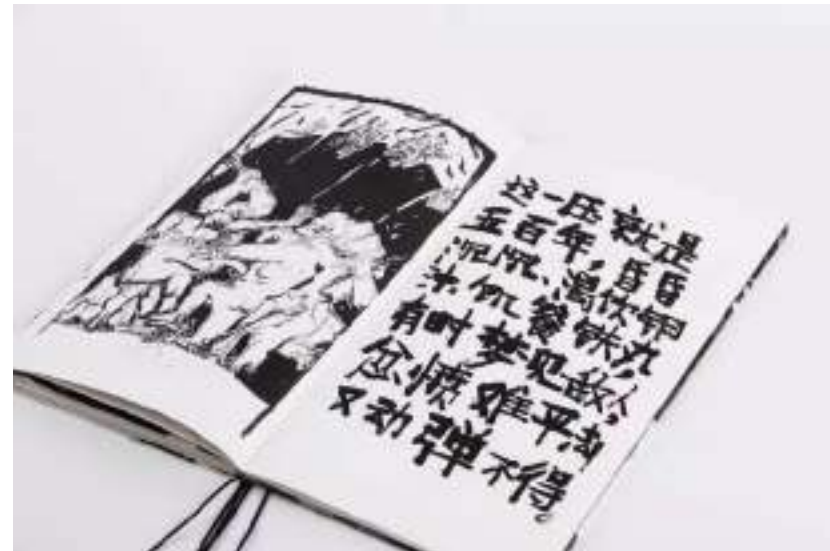 这一压就是
五百年，昏昏
沉沉、渴饮铜
汁饥餐铁丸，
有时梦见敌人，
忿愤难平却
又动弹不得。